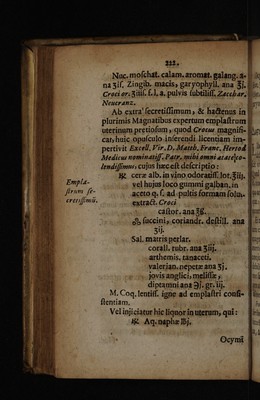 222.
Nuc. moschat. calam. aromat. galang. a-
na ʒiß. Zingib. macis, garyophyll. ana ʒj.
Croci or. ʒiiiß. f. l. a. pulvis subtiliss. Zacchar.
Neucranz.
Ab extra secretissimum, & hactenus in
plurimis Magnatibus expertum emplastrum
uterinum pretiosum, quod Crocus magnifi-
cat, huic opusculo inserendi licentiam im-
pertivit Excell. Vir. D. Matth. Franc. Hertod
Medicus nominatiss. Patr. mihi omni ætate co-
lendissimus; cujus hæc est descriptio:
Empla-
strum se-
cretissimū.
℞ ceræ alb. in vino odoratiss. lot. ʒiij.
vel hujus loco gummi galban. in
aceto q. s. ad pultis formam solu.
extract. Croci
castor. ana ʒß.
succini, coriandr. destill. ana
ʒij.
Sal. matris perlar.
corall. rubr. ana ʒiij.
arthemis. tanaceti.
valerian. nepetæ ana ʒj.
jovis anglici, melissæ,
diptamni ana ℈j. gr. iij.
M. Coq. lentiss. igne ad emplastri consi-
stentiam.
Vel injiciatur hic liquor in uterum, qui:
℞ Aq. naphæ ℔j.
Ocymi